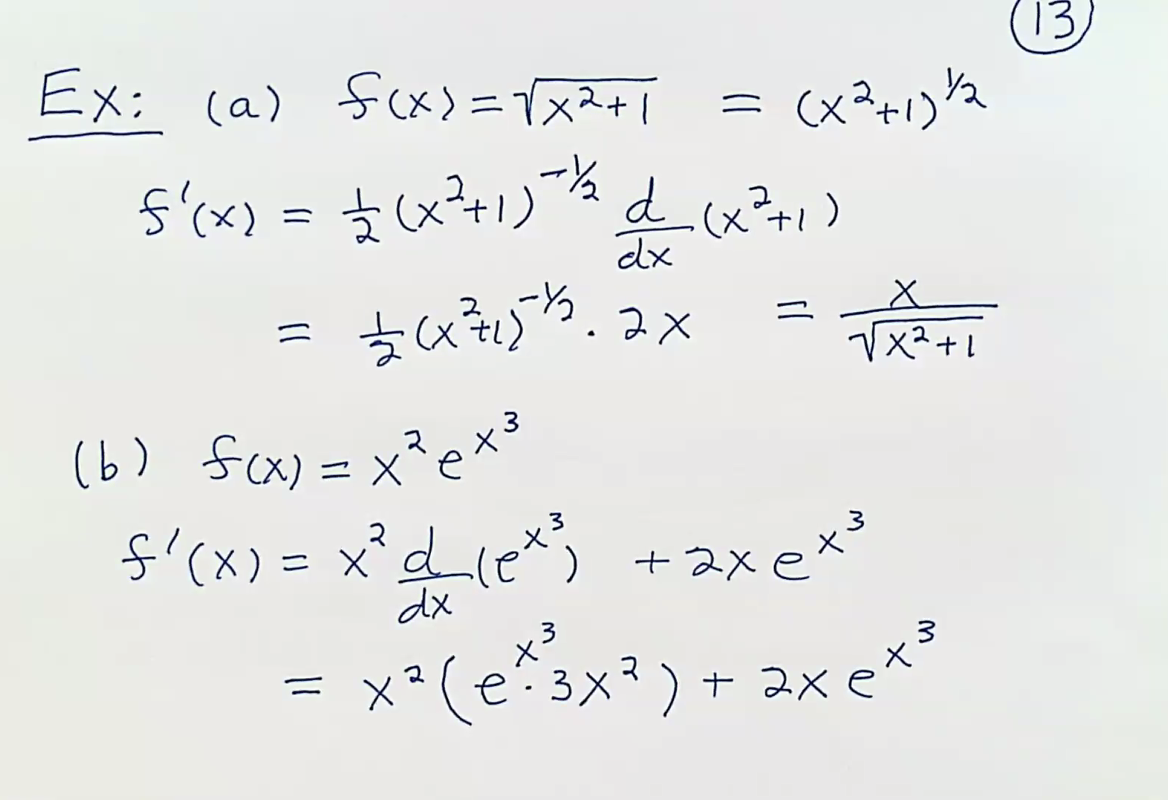 13
Ex: (a) f(x) = √(x²+1) = (x²+1)^½
f'(x) = ½(x²+1)^(-½) d/dx (x²+1)
= ½(x²+1)^(-½) · 2x = x/√(x²+1)
(b) f(x) = x² e^(x³)
f'(x) = x² d/dx (e^(x³)) + 2x e^(x³)
= x² (e^(x³) · 3x²) + 2x e^(x³)